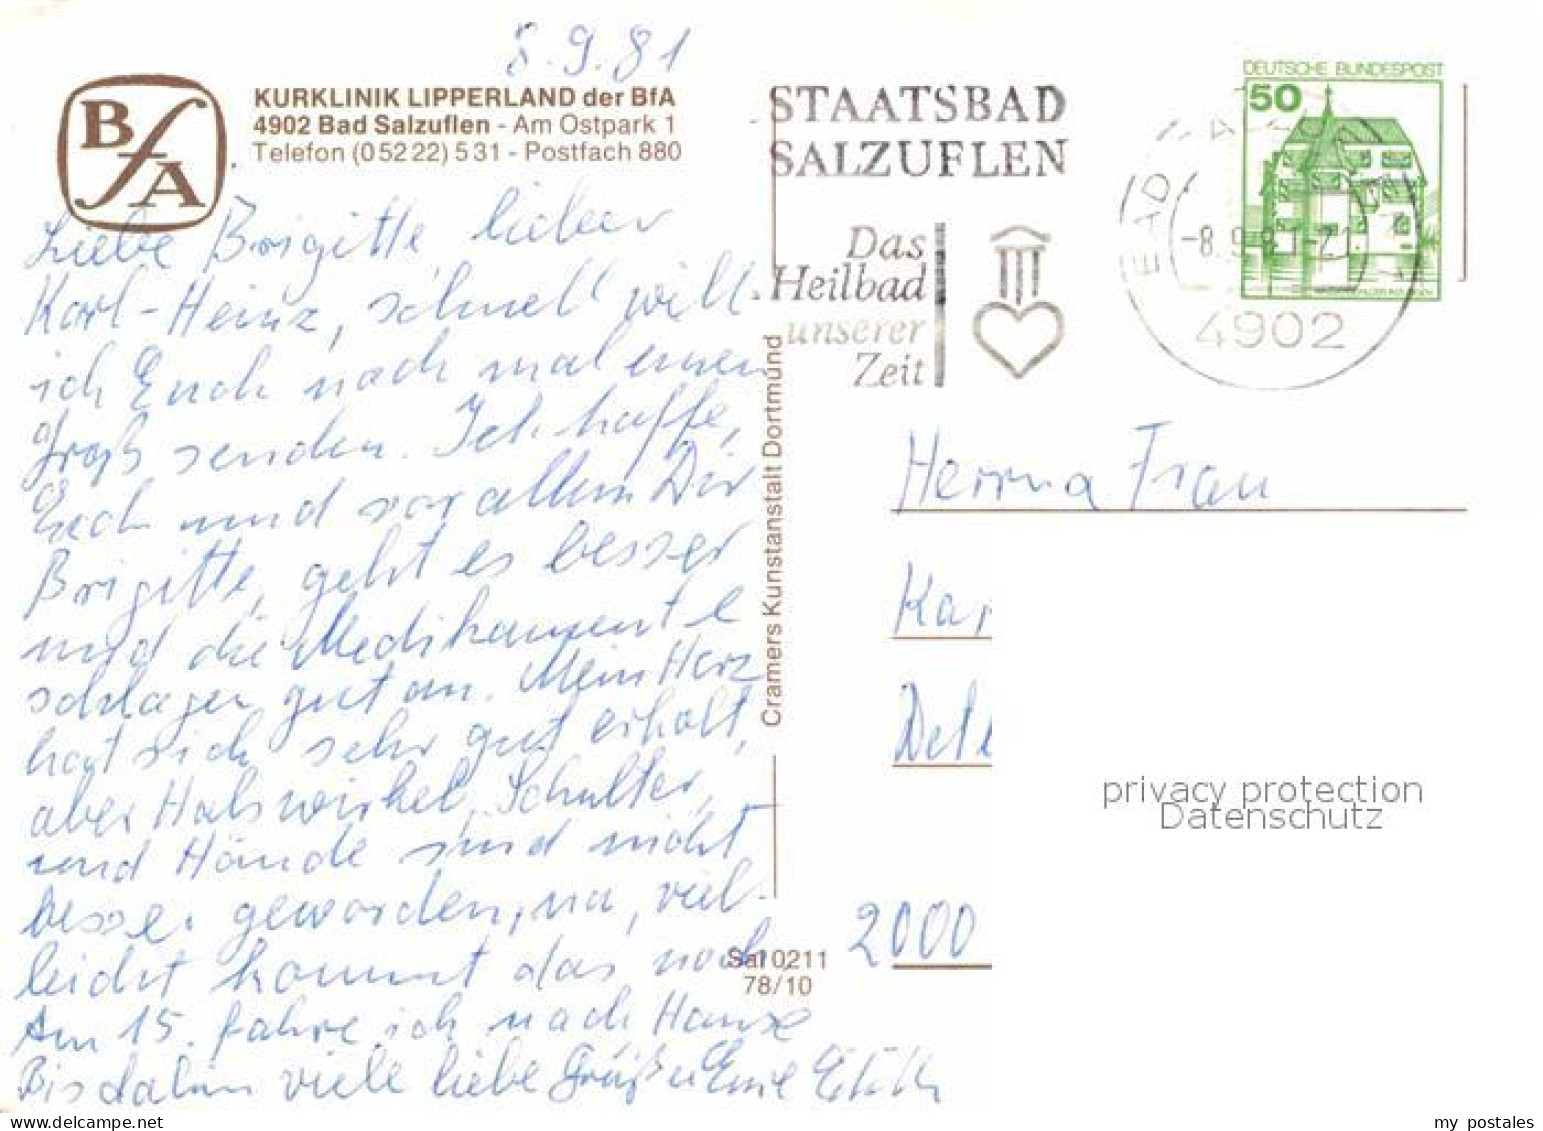 8.9.81
BfA
KURKLINIK LIPPERLAND der BfA
4902 Bad Salzuflen - Am Ostpark 1
Telefon (05222) 531 - Postfach 880
Liebe Brigitte lieber
Karl-Heinz, schnell will
ich Euch noch mal einen
Gruß senden. Ich hoffe,
Euch und vor allem Dir
Brigitte, geht es besser
und die Medikamente
schlagen gut an. Mein Herz
hat sich sehr gut erholt,
aber Halswirbel, Schulter,
und Hände sind nicht
besser geworden, na, viel-
leicht kommt das noch.
Am 15. fahre ich nach Hause
Bis dahin viele liebe Grüße Eure
Cramers Kunstanstalt Dortmund
Sal 0211
78/10
STAATSBAD
SALZUFLEN
Das
Heilbad
unserer
Zeit
BAD SALZUFLEN 1
-8.9.81-21
4902
DEUTSCHE BUNDESPOST
50
Herrn u Frau
Kar
Det
2000
privacy protection
Datenschutz
my postales